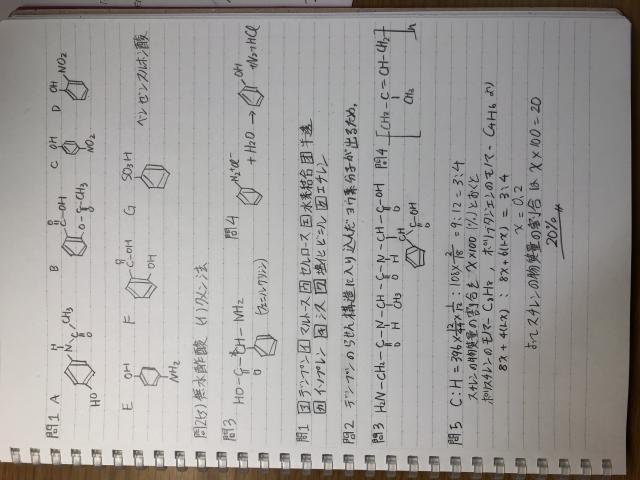 問1 A B C D
HO H N C CH₃ O
O C-OH O-C-CH₃ O
OH NO₂
OH NO₂
E F G
OH NH₂
O C-OH OH
SO₃H ベンゼンスルホン酸
問2(ア) 無水酢酸 (イ) クメン法
問3 問4
HO-C-CH-NH₂ O
N₂⁺Cl⁻ + H₂O → OH + N₂ + HCl
問1 デンプン マルトース セルロース 水素結合
イソプレン シス 塩化ビニル エチレン
問2 デンプンのらせん構造に入り込んだヨウ素分子が出るため。
問3 H₂N-CH₂-C-N-CH-C-N-CH-C-OH
O H CH₃ O H O
CH C-OH O
問4 [CH₂-C=CH-CH₂]n
CH₃
問5 C:H = 396×12/44×1/12 : 108×2/18 = 9:12 = 3:4
スチレンの物質量の割合を x×100 (%) とおくと
ポリスチレンのモノマー C₈H₈, ポリブタジエンのモノマー C₄H₆ より
8x+4(1-x) : 8x+6(1-x) = 3:4
x = 0.2
よってスチレンの物質量の割合は x×100=20
20%